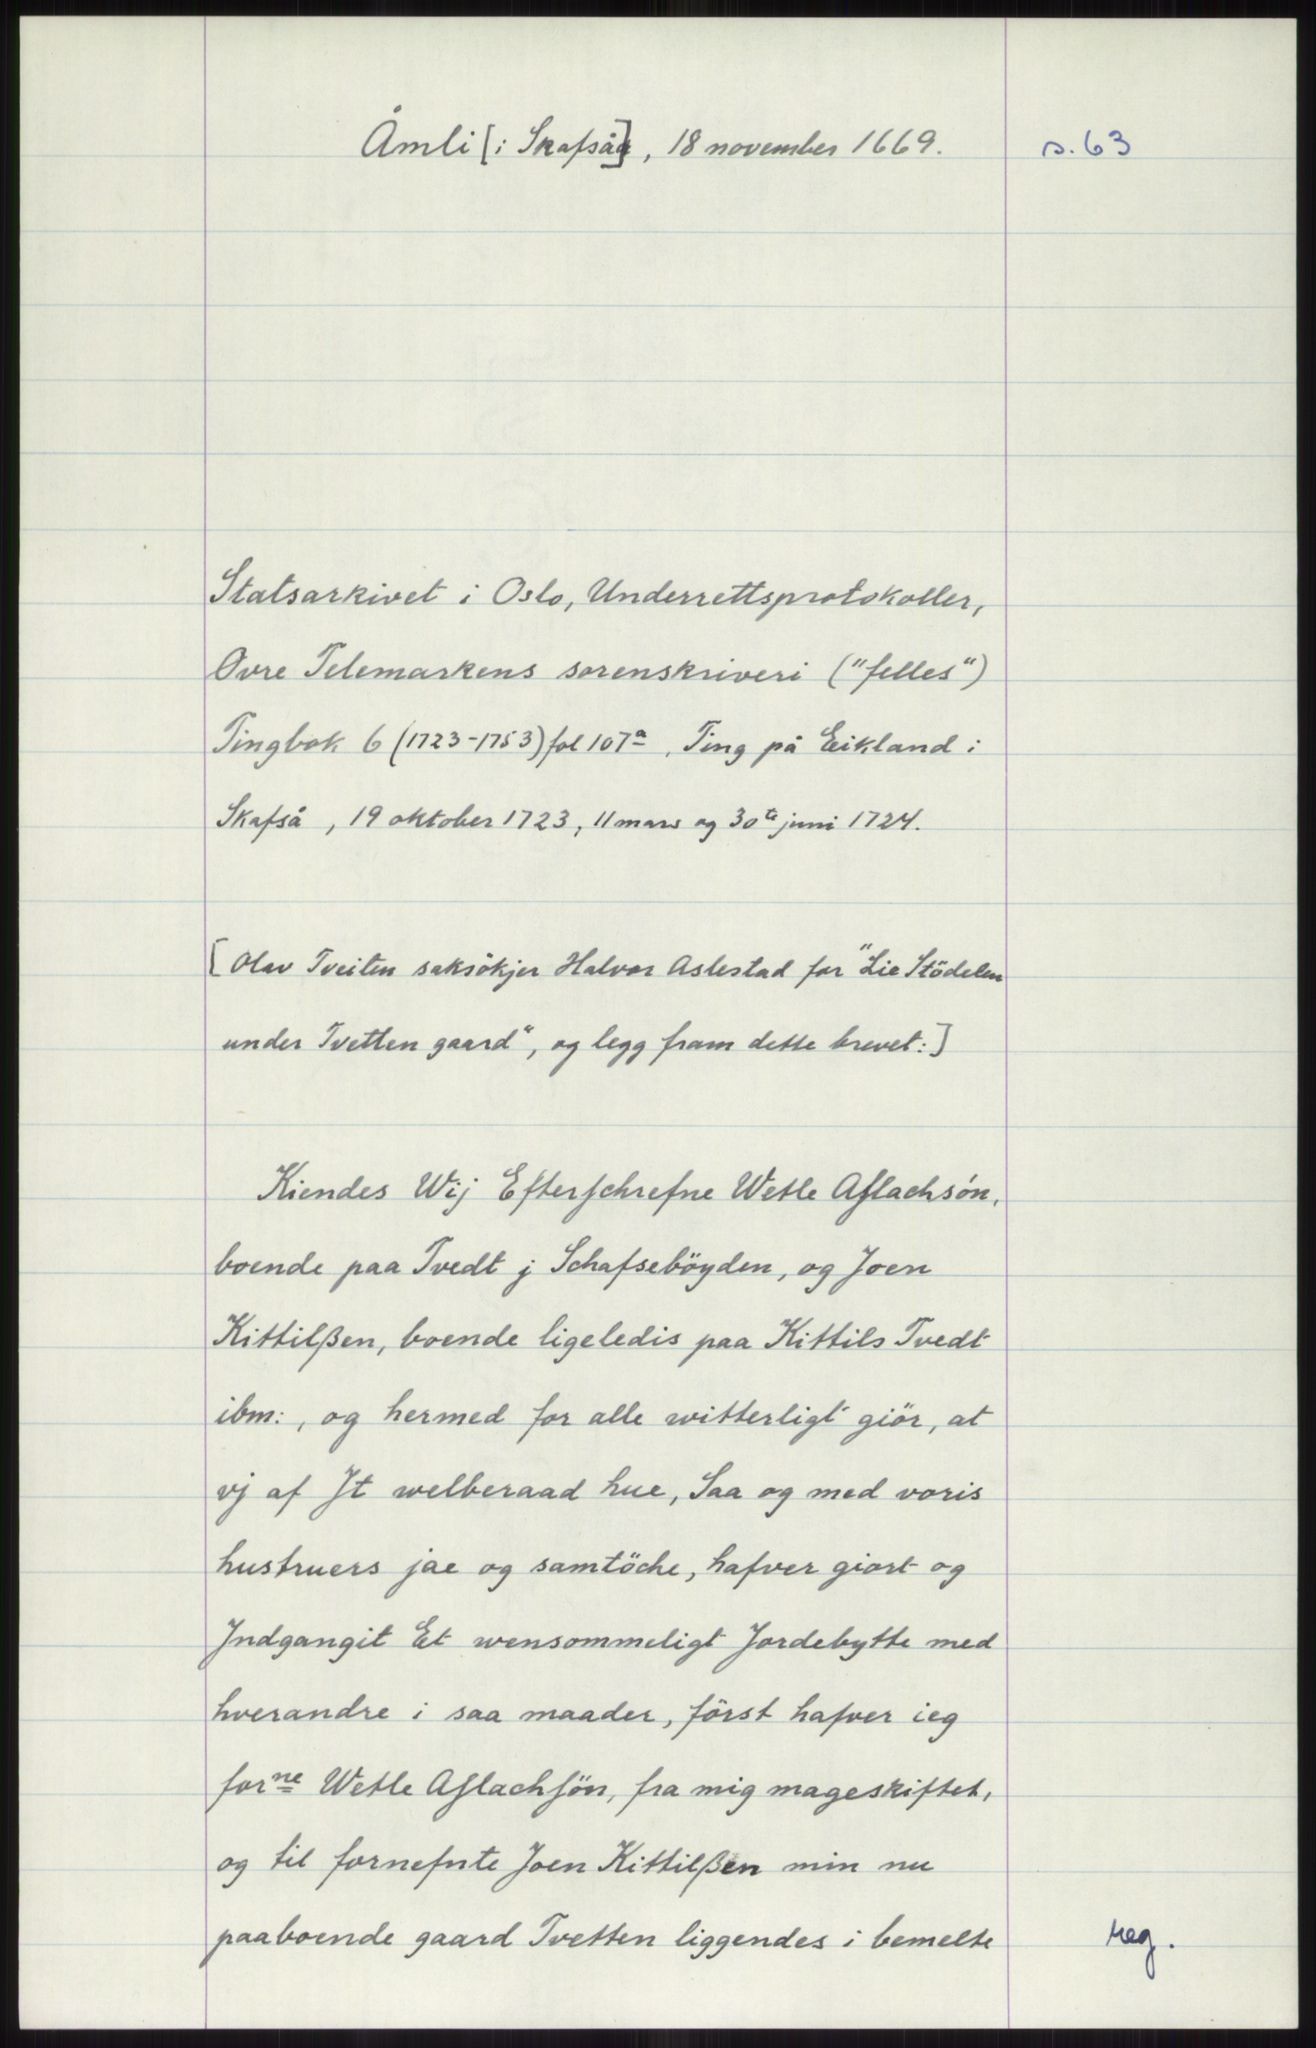 Åmli [i Skafså], 18 november 1669.
s. 63
Statsarkivet i Oslo, Underrettsprotokoller,
Øvre Telemarkens sorenskriveri ("felles")
Tingbok 6 (1723-1753) fol 107a, Ting på Eikland i
Skafså, 19 oktober 1723, 11 mars og 30te juni 1724.
[Olav Tveiten saksökjer Halvor Aslestad for "Lie Stödelen
under Tvetten gaard", og legg fram dette brevet:]
Kiendes Wij Efterschrefne Wetle Aslachsön,
boende paa Tvedt j Schafseböyden, og Joen
Kittilßen, boende ligeledis paa Kittils Tvedt
ibm:, og hermed for alle witterligt giör, at
vj af Jt welberaad hue, Saa og med voris
hustruers jae og samtöche, hafver giort og
Jndgangit Et wensommeligt Jordebytte med
hverandre i saa maader, först hafver ieg
forne Wetle Aslachsön, fra mig mageskiftet,
og til fornefnte Joen Kittilßen min nu
paaboende gaard Tvetten liggendes i bemelte
reg.